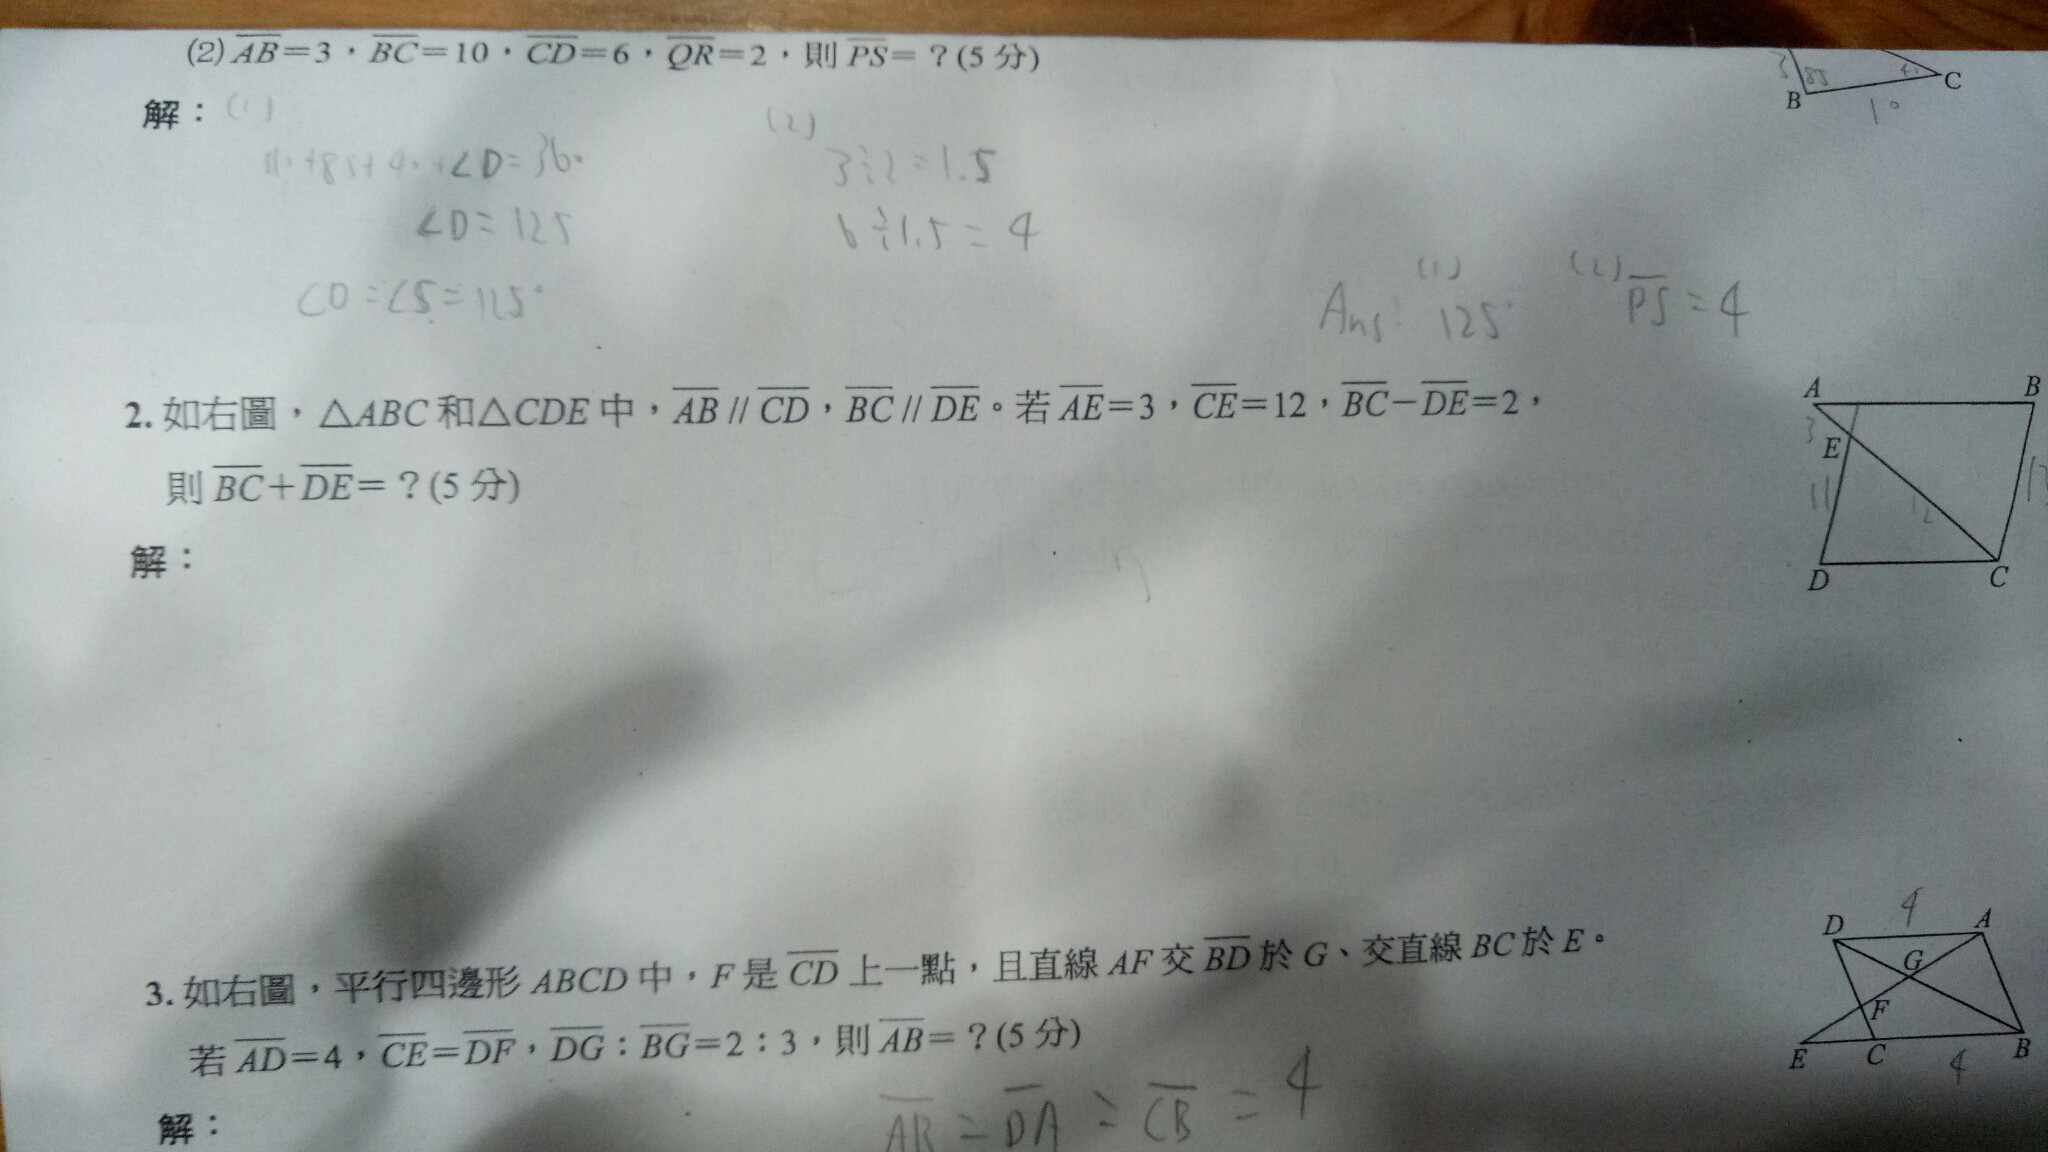 (2) AB=3，BC=10，CD=6，QR=2，則 PS=？(5 分)
解：(1)
+85+40+∠D=360
∠D=125
∠D=∠S=125°
(2)
3÷2=1.5
6÷1.5=4
Ans: (1) 125° (2) PS=4
B
C
85
10
2. 如右圖，△ABC 和△CDE 中，AB // CD，BC // DE。若 AE=3，CE=12，BC－DE=2，
則 BC+DE=？(5 分)
解：
A
B
3
E
11
12
D
C
3. 如右圖，平行四邊形 ABCD 中，F 是 CD 上一點，且直線 AF 交 BD 於 G、交直線 BC 於 E。
若 AD=4，CE=DF，DG：BG=2：3，則 AB=？(5 分)
解：
AB=DA=CB=4
4
D
A
G
F
E
C
4
B